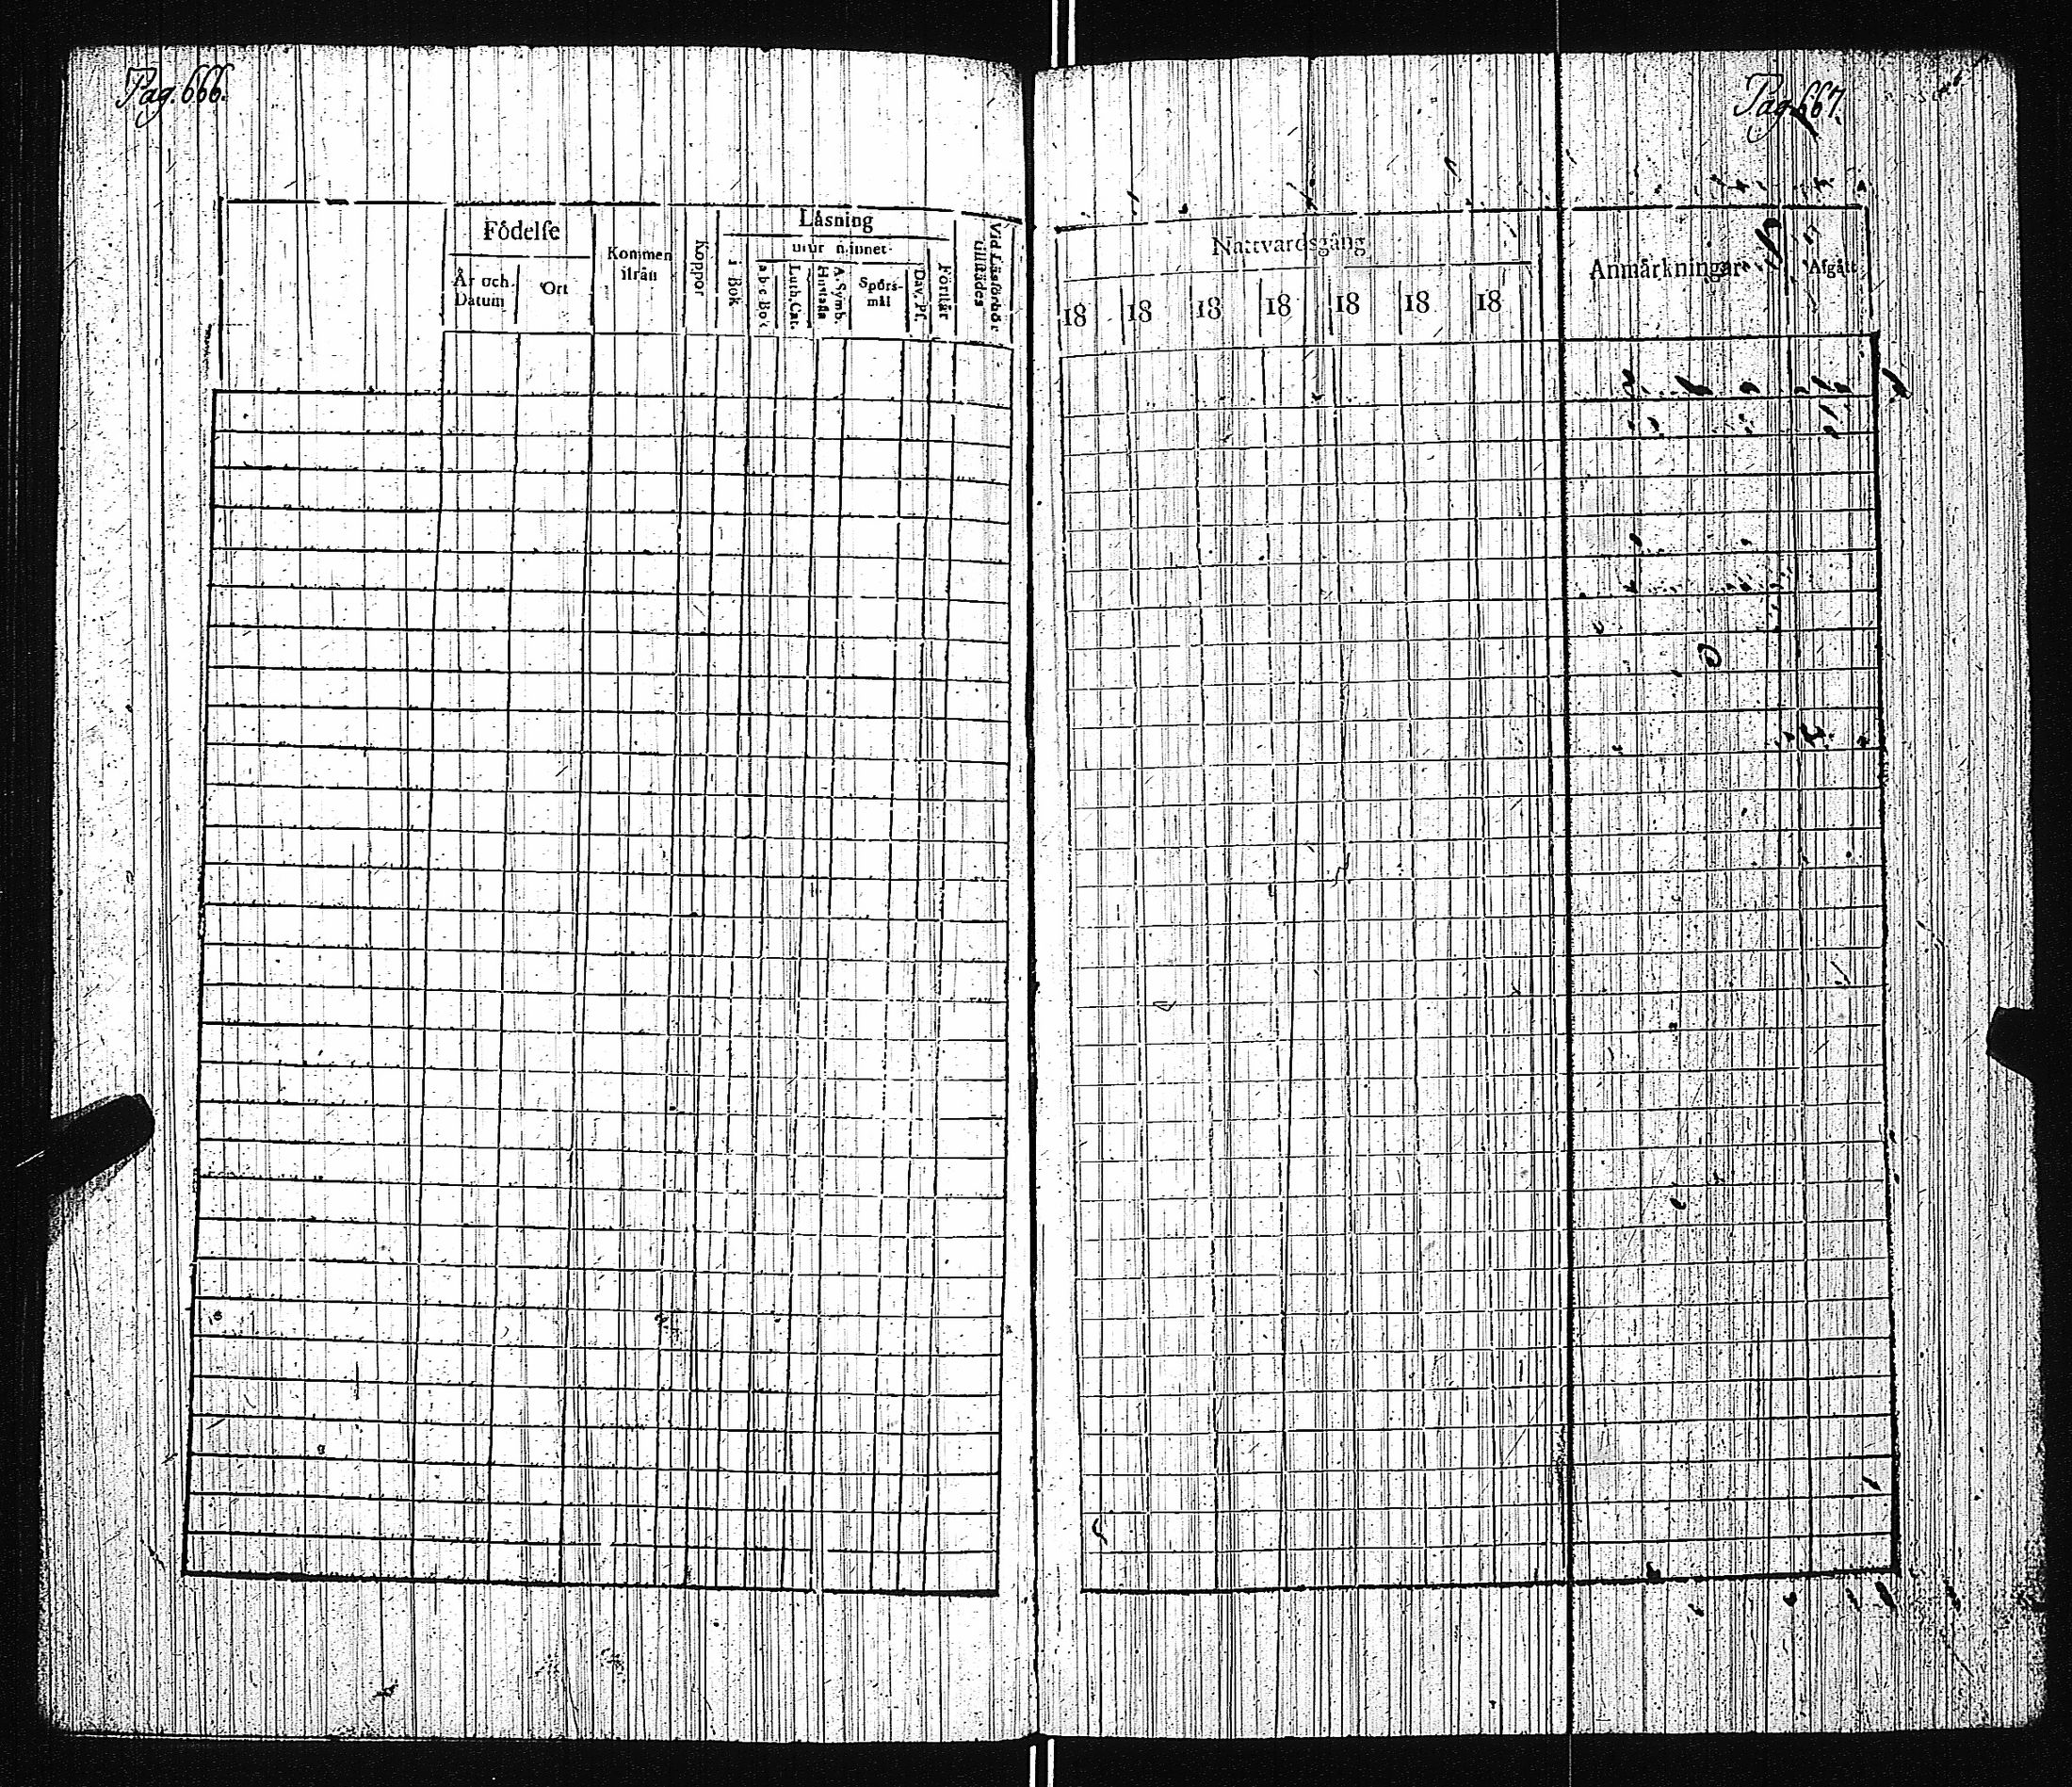 Pag. 666.
Födelse
År och Datum
Ort
Kommen ifrån
Koppor
Läsning
i Bok
utur minnet
a b c Bok
Luth. Cat.
Hustafla
A. Symb.
Spörsmål
Dav. Ps.
Förstår
Vid Läsförhör tillstädes
Pag. 667.
Nattvardsgång
18 18 18 18 18 18 18
Anmärkningar
Afgått